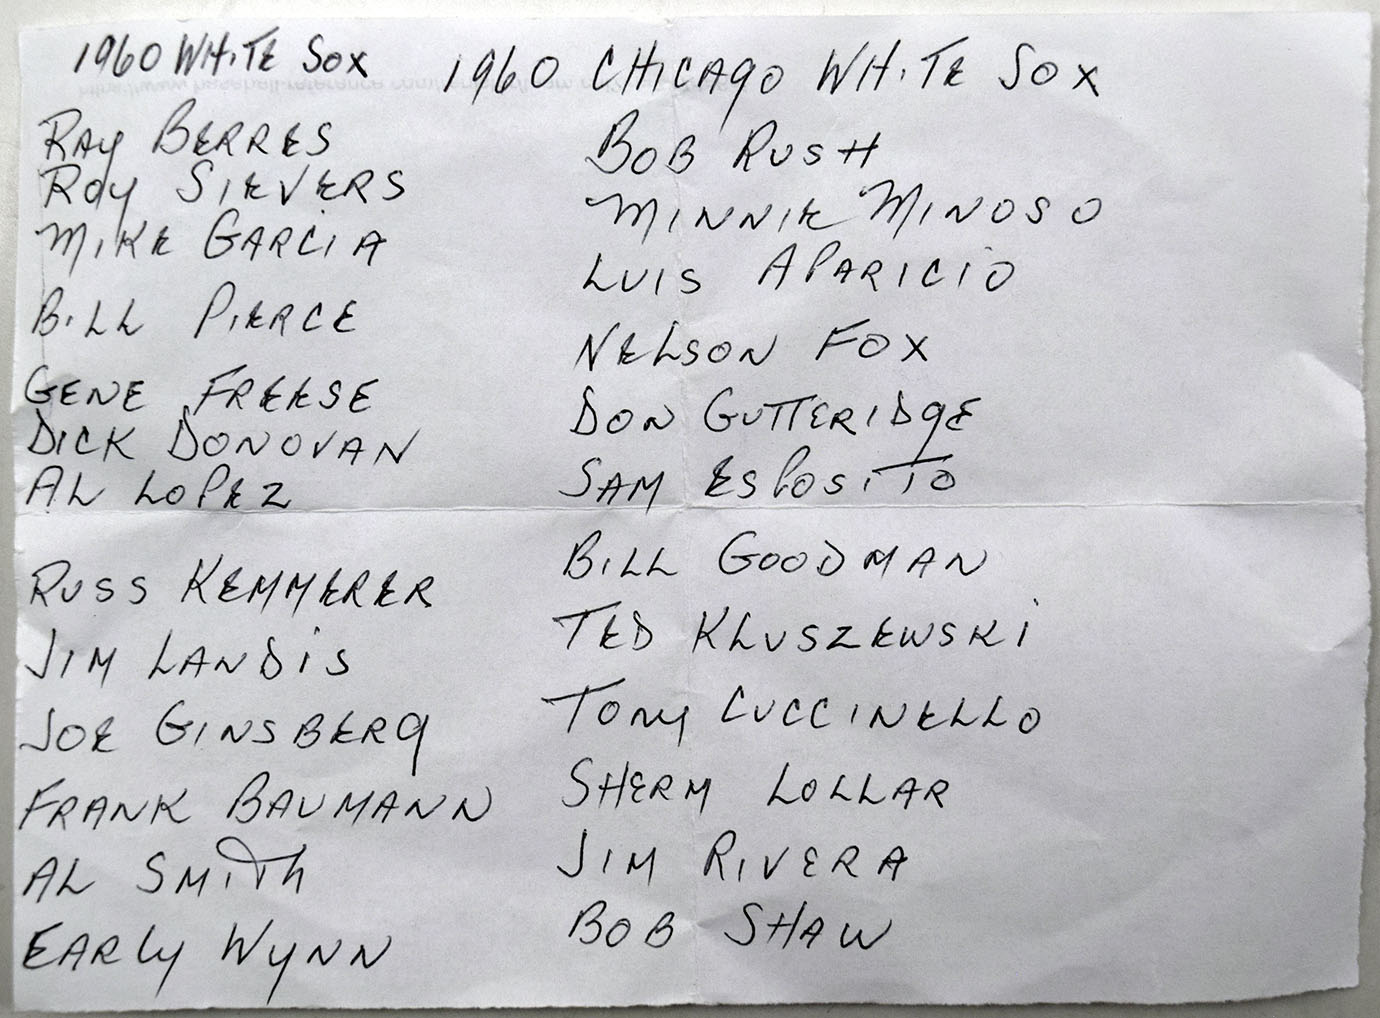 1960 WHITE SOX
RAY BERRES
ROY SIEVERS
MIKE GARCIA
BILL PIERCE
GENE FREESE
DICK DONOVAN
AL LOPEZ
RUSS KEMMERER
JIM LANDIS
JOE GINSBERG
FRANK BAUMANN
AL SMITH
EARLY WYNN
1960 CHICAGO WHITE SOX
BOB RUSH
MINNIE MINOSO
LUIS APARICIO
NELSON FOX
DON GUTTERIDGE
SAM ESPOSITO
BILL GOODMAN
TED KLUSZEWSKI
TONY CUCCINELLO
SHERM LOLLAR
JIM RIVERA
BOB SHAW